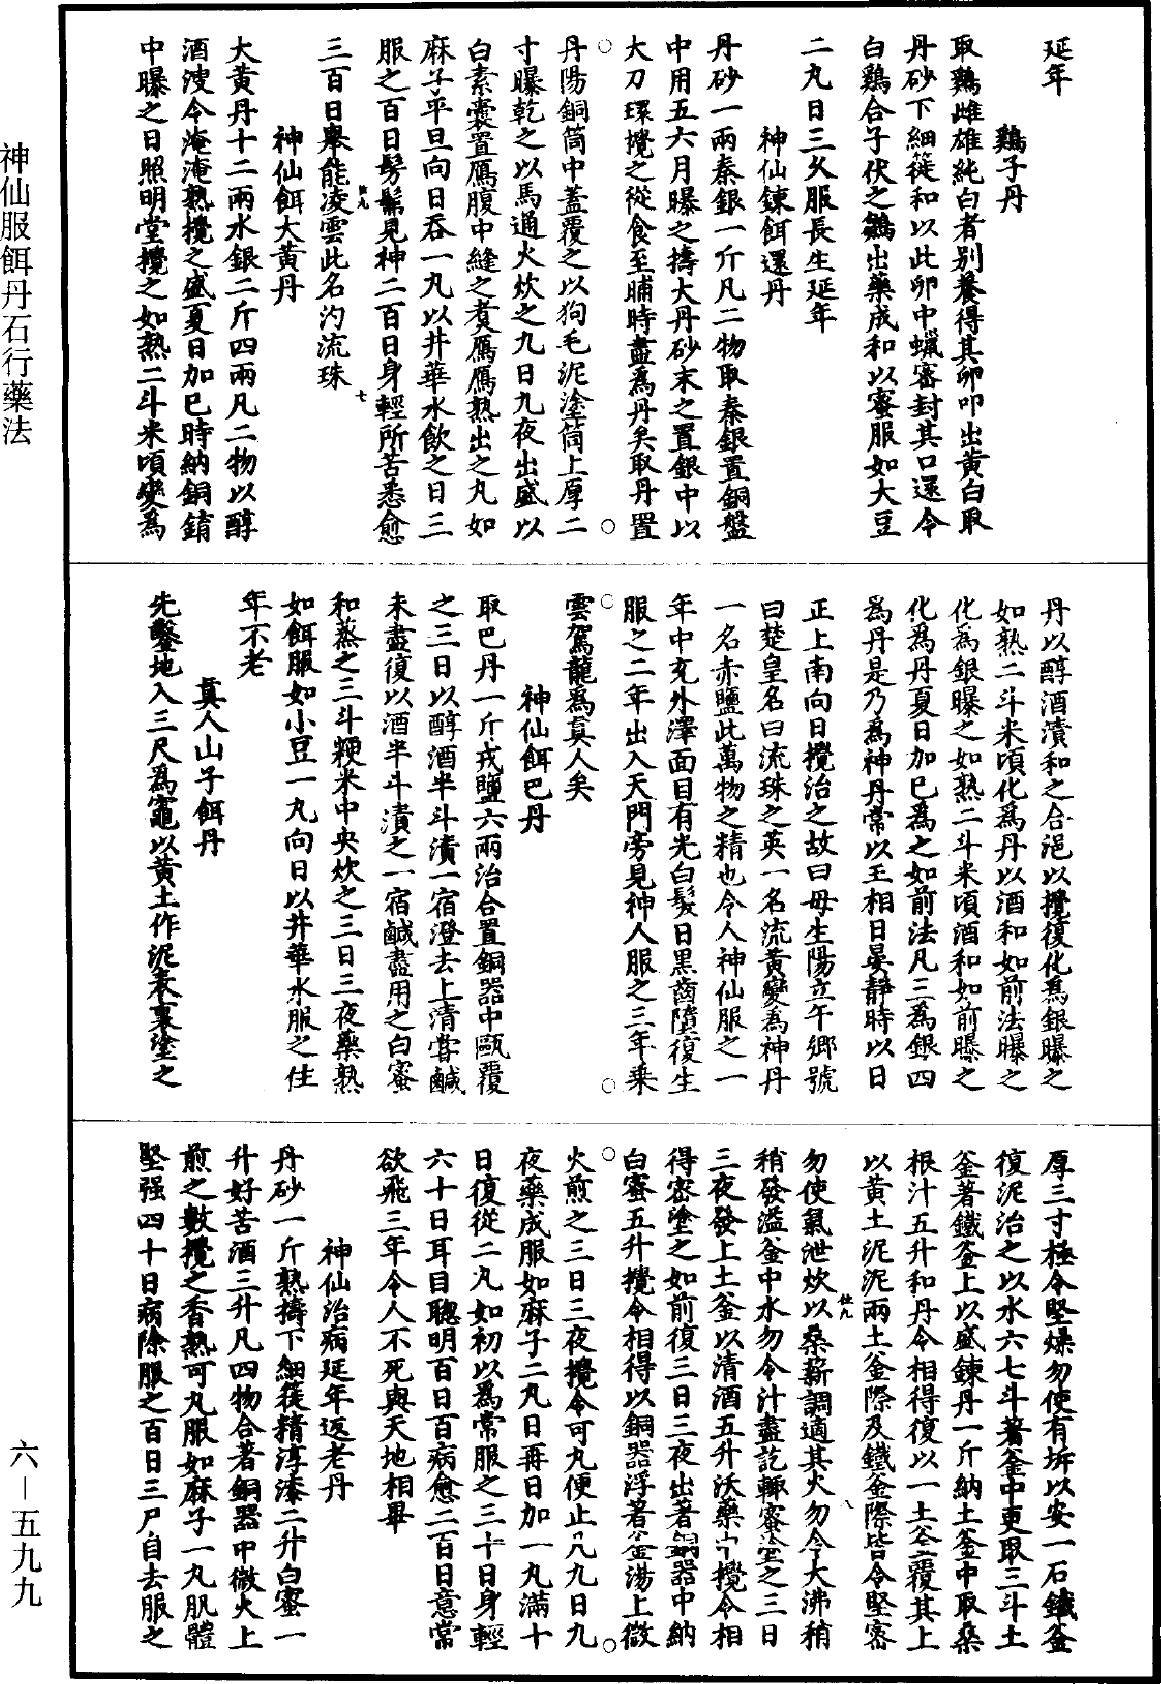 神仙服餌丹石行藥法
延年
鷄子丹
取鷄雌雄純白者別養得其卵叩出黄白取
丹砂下細簁和以此卵中蠟密封其口還令
白鷄合子伏之鷄出藥成和以蜜服如大豆
二丸日三久服長生延年
神仙鍊餌還丹
丹砂一兩秦銀一斤凡二物取秦銀置銅盤
中用五六月曝之擣大丹砂末之置銀中以
大刀環攪之從食至晡時盡爲丹矣取丹置
丹陽銅筒中蓋覆之以狗毛泥塗筒上厚二
寸曝乾之以馬通火炊之九日九夜出盛以
白素囊置鴈腹中縫之煮鴈鴈熟出之丸如
麻子平旦向日吞一丸以井華水飲之日三
服之百日髣髴見神二百日身輕所苦悉愈
三百日舉能凌雲此名汋流珠
神仙餌大黄丹
大黄丹十二兩水銀二斤四兩凡二物以醇
酒溲令淹淹熟攪之盛夏日加巳時納銅錥
中曝之日照明堂攪之如熟二斗米頃變爲
丹以醇酒漬和之合浥以攪復化爲銀曝之
如熟二斗米頃化爲丹以酒和如前法曝之
化爲銀曝之如熟二斗米頃酒和如前曝之
化爲丹夏日加巳爲之如前法凡三爲銀四
爲丹是乃爲神丹常以王相日晏靜時以日
正上南向日攪治之故曰毋生陽立午鄉號
曰楚皇名曰流珠之英一名流黄變爲神丹
一名赤鹽此萬物之精也令人神仙服之一
年中充外澤面目有光白髮日黒齒墮復生
服之二年出入天門旁見神人服之三年乗
雲駕龍爲真人矣
神仙餌巴丹
取巴丹一斤戎鹽六兩治合置銅器中甌覆
之三日以醇酒半斗漬一宿澄去上清嘗鹹
未盡復以酒半斗漬之一宿鹹盡用之白蜜
和蒸之三斗粳米中央炊之三日三夜藥熟
如餌服如小豆一丸向日以井華水服之住
年不老
真人山子餌丹
先鑿地入三尺爲竈以黄土作泥表裏塗之
厚三寸極令堅燥勿使有坼以安一石鐵釜
復泥治之以水六七斗著釜中更取三斗土
釜著鐵釜上以盛鍊丹一斤納土釜中取桑
根汁五升和丹令相得復以一土釜覆其上
以黄土泥泥兩土釜際及鐵釜際皆令堅密
勿使氣泄炊以桑薪調適其火勿令大沸稍
稍發溢釜中水勿令汁盡訖輙蜜塗之三日
三夜發上土釜以清酒五升沃藥中攪令相
得密塗之如前復三日三夜出著銅器中納
白蜜五升攪令相得以銅器浮著釜湯上微
火煎之三日三夜攪令可丸便止凡九日九
夜藥成服如麻子二丸日再日加一丸滿十
日復從二丸如初以爲常服之三十日身輕
六十日耳目聰明百日百病愈二百日意常
欲飛三年令人不死與天地相畢
神仙治病延年返老丹
丹砂一斤熟擣下細簁精淳漆二升白蜜一
升好苦酒三升凡四物合著銅器中微火上
煎之數攪之香熟可丸服如麻子一丸肌體
堅强四十日病除服之百日三尸自去服之
六—五九九